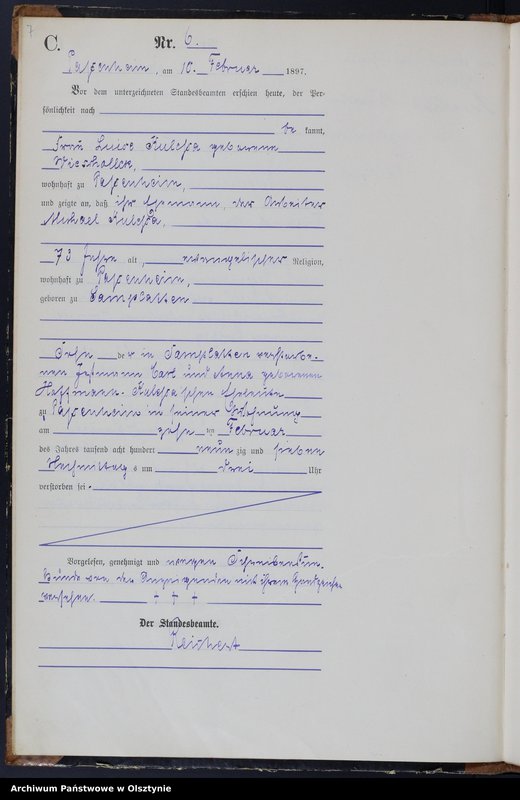 7
C.
Nr. 6.
Passenheim, am 10. Februar 1897.
Vor dem unterzeichneten Standesbeamten erschien heute, der Per-
sönlichkeit nach
be kannt,
Frau Luise Kulessa geborene
wohnhaft zu Passenheim,
und zeigte an, daß ihr Ehemann, der Arbeiter
Michael Kulessa,
73 Jahre alt, evangelischer Religion,
wohnhaft zu Passenheim,
geboren zu Samplatten
Sohn der in Samplatten verstorbe-
nen Carl und Anna geborenen
Hoffmann-Kulessa'schen Eheleute
zu Passenheim in seiner Wohnung
am zehn ten Februar
des Jahres tausend acht hundert neun zig und sieben
Nachmittags um drei Uhr
verstorben sei.
Vorgelesen, genehmigt und wegen Schreibensun-
kunde von der Anzeigenden mit ihrem Handzeichen
versehen. + + +
Der Standesbeamte.
Reichert
Archiwum Państwowe w Olsztynie